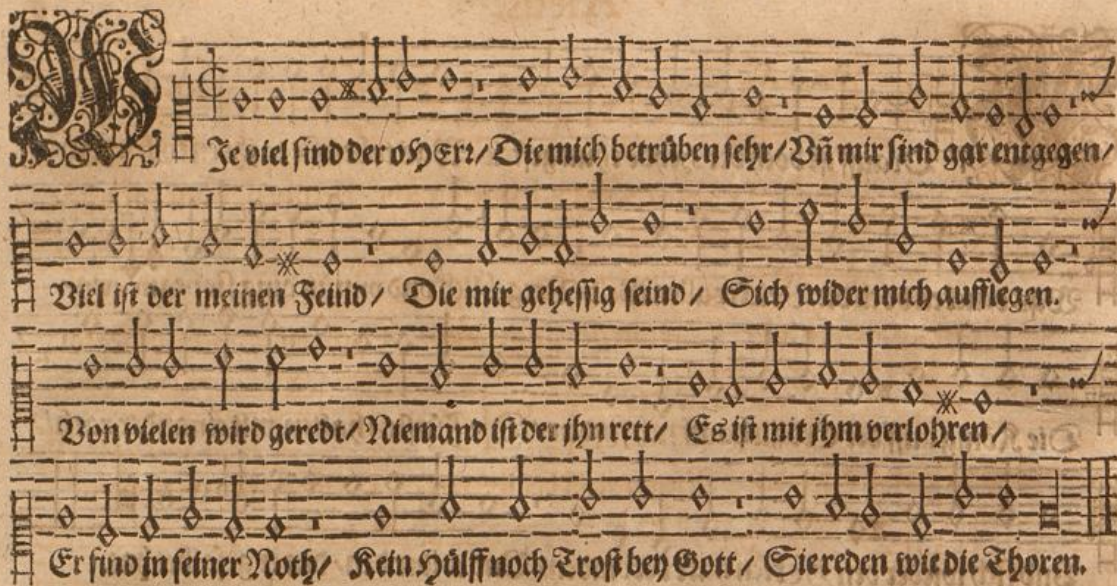 WJe viel sind der o HErr/ Die mich betrüben sehr/ Vñ mir sind gar entgegen/
Viel ist der meinen Feind/ Die mir gehessig seind/ Sich wider mich aufflegen.
Von vielen wird geredt/ Niemand ist der jhn rett/ Es ist mit jhm verlohren/
Er find in seiner Noth/ Kein Hülff noch Trost bey Gott/ Sie reden wie die Thoren.